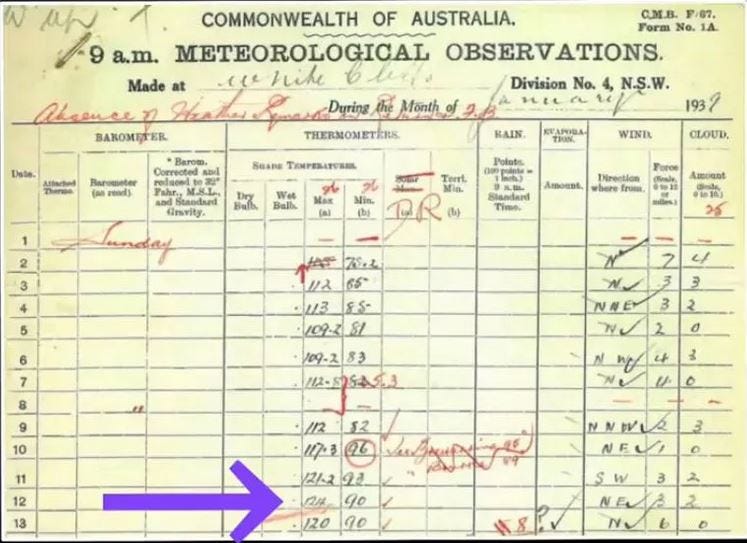 COMMONWEALTH OF AUSTRALIA.
C.M.B. F/67.
Form No. 1A.
9 a.m. METEOROLOGICAL OBSERVATIONS.
Made at White Cliffs Division No. 4, N.S.W.
Absence of Weather Remarks
During the Month of January 1939
BAROMETER. THERMOMETERS. RAIN. EVAPORATION. WIND. CLOUD.
Date. Attached Thermo. Barometer (as read). * Barom. Corrected and reduced to 32° Fahr., M.S.L., and Standard Gravity. SHADE TEMPERATURES. Dry Bulb. Wet Bulb. Max (a) Min. (b) Solar Max. (a) Terrl. Min. (b) Points. (100 points = 1 inch.) 9 a.m. Standard Time. Amount. Direction where from. Force (Scale, 0 to 12 or miles.) Amount (Scale, 0 to 10.)
26 26 DR 25
1 Sunday — — — — —
2 75.2 N 7 4
3 112 85 N 3 3
4 113 85 NNE 3 2
5 109.2 81 N 2 0
6 109.2 83 N W 4 3
7 112.8 5.3 N 4 0
8 " — — — —
9 112 82 NNW 2 3
10 117.3 96 See NE 1 0
11 121.2 93 " 89 SW 3 2
12 90 NE 3 2
13 120 90 8 ? N 6 0